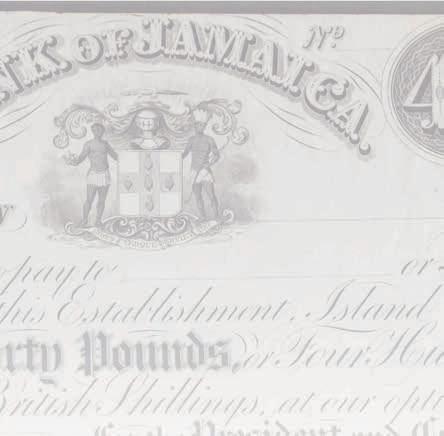 NK OF JAMAICA.
No
4
pay to or
this Establishment, Island
rty Pounds, or Four Hu
British Shillings, at our opti
President and